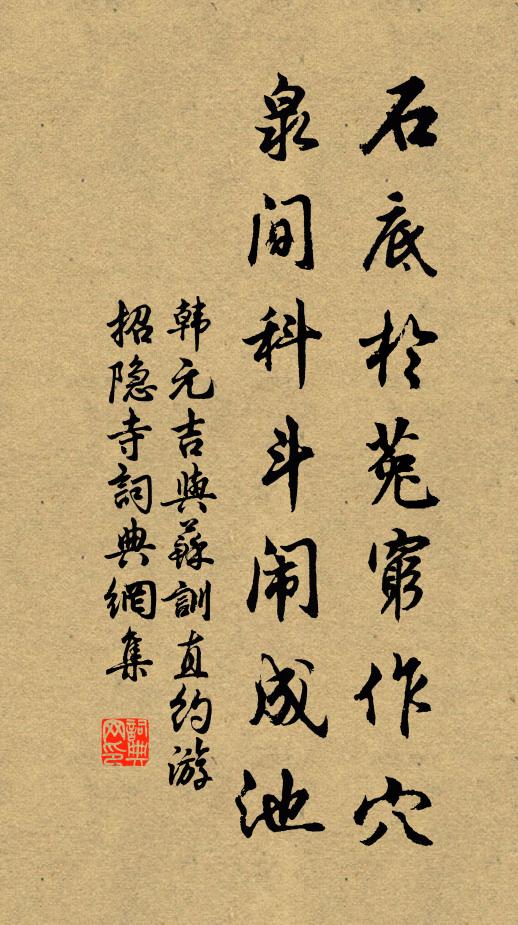 石底於菟窮作穴
泉间科斗闹成池
韩元吉與蘇訓直约游
招隐寺詞典網集
詞典
网印